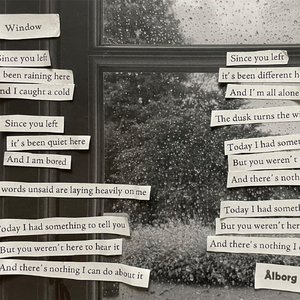 Window
Since you left
been raining here
And I caught a cold
Since you left
it's been quiet here
And I am bored
words unsaid are laying heavily on me
Today I had something to tell you
But you weren't here to hear it
And there's nothing I can do about it
Since you left
it's been different h
And I'm all alone
The dusk turns the wi
Today I had some
But you weren't
And there's noth
Today I had some
But you weren't
And there's nothing I
Ålborg